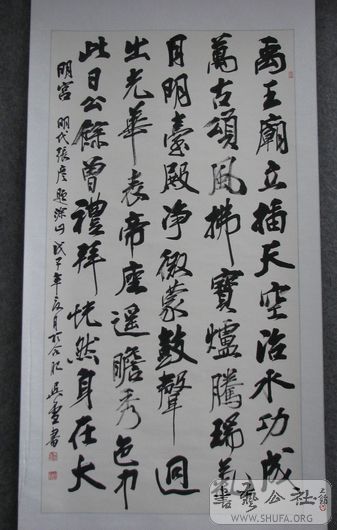 禹王廟立插天空治水功成
萬古頌風拂寶爐騰瑞氣
月明臺殿淨微蒙鼓聲迴
出光華表帝座遥瞻秀色中
此日公餘曾禮拜恍然身在大
明宮 明代張彦題塗山 戊子年夏月於合肥 書
書藝公社
WWW.SHUFA.ORG